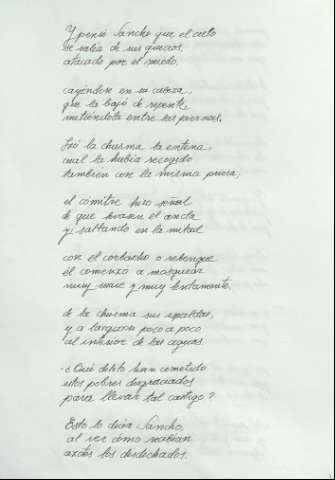 Y pensó Sancho que el cielo
se salía de sus quicios,
atacado por el miedo,
cayéndose en su cabeza,
que la bajó de repente,
metiéndola entre las piernas.
Izó la chusma la entena,
cual la había recogido
también con la misma priesa;
el cómitre hizo señal
de que izasen el ancla
y saltando en la mitad
con el corbacho o rebenque
él comenzó a mosquear
muy suave y muy lentamente,
de la chusma sus espaldas,
y a largarse poco a poco
al interior de las aguas.
¿Qué delito han cometido
estos pobres desgraciados
para llevar tal castigo?
Esto lo decía Sancho,
al ver cómo recibían
azotes los desdichados.